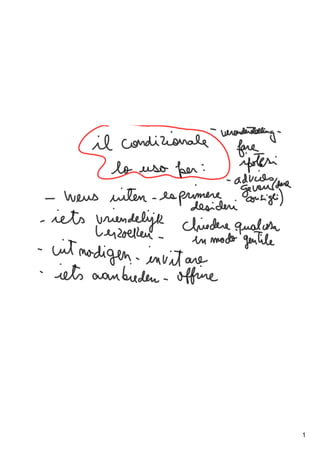 il condizionale
lo uso per:
- veronderstelling -
fare
ipotesi
- advies
geven (dare
consigli)
- wens uiten - esprimere
desideri
- iets vriendelijk
verzoeken - chiedere qualcosa
in modo gentile
- uitnodigen - invitare
- iets aanbieden - offrire
1